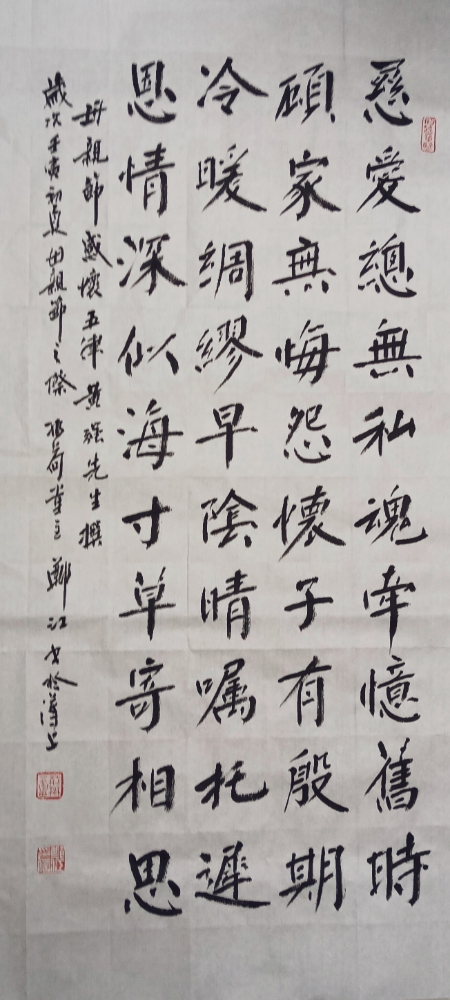 慈愛總無私魂牽憶舊時
顧家無悔怨懷子有殷期
冷暖綢繆早陰晴嘱托遲
恩情深似海寸草寄相思
母親節感懷五律黄強先生撰
歲次壬寅初夏母親節之際 荷堂主鄭江書於